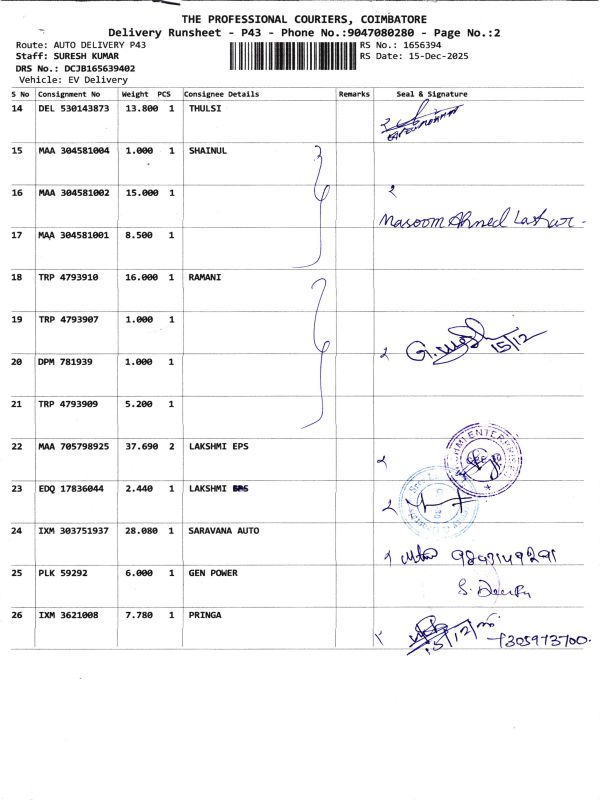 THE PROFESSIONAL COURIERS, COIMBATORE
Delivery Runsheet - P43 - Phone No.:9047080280 - Page No.:2
Route: AUTO DELIVERY P43
RS No.: 1656394
Staff: SURESH KUMAR
RS Date: 15-Dec-2025
DRS No.: DCJB165639402
Vehicle: EV Delivery
S No Consignment No Weight PCS Consignee Details Remarks Seal & Signature
14 DEL 530143873 13.800 1 THULSI
15 MAA 304581004 1.000 1 SHAINUL
16 MAA 304581002 15.000 1
Masoom Ahmed Laskar
17 MAA 304581001 8.500 1
18 TRP 4793910 16.000 1 RAMANI
19 TRP 4793907 1.000 1
15/12
20 DPM 781939 1.000 1
21 TRP 4793909 5.200 1
22 MAA 705798925 37.690 2 LAKSHMI EPS
23 EDQ 17836044 2.440 1 LAKSHMI
24 IXM 303751937 28.080 1 SARAVANA AUTO
9843149291
25 PLK 59292 6.000 1 GEN POWER
26 IXM 3621008 7.780 1 PRINGA
15/12/
7305973700.